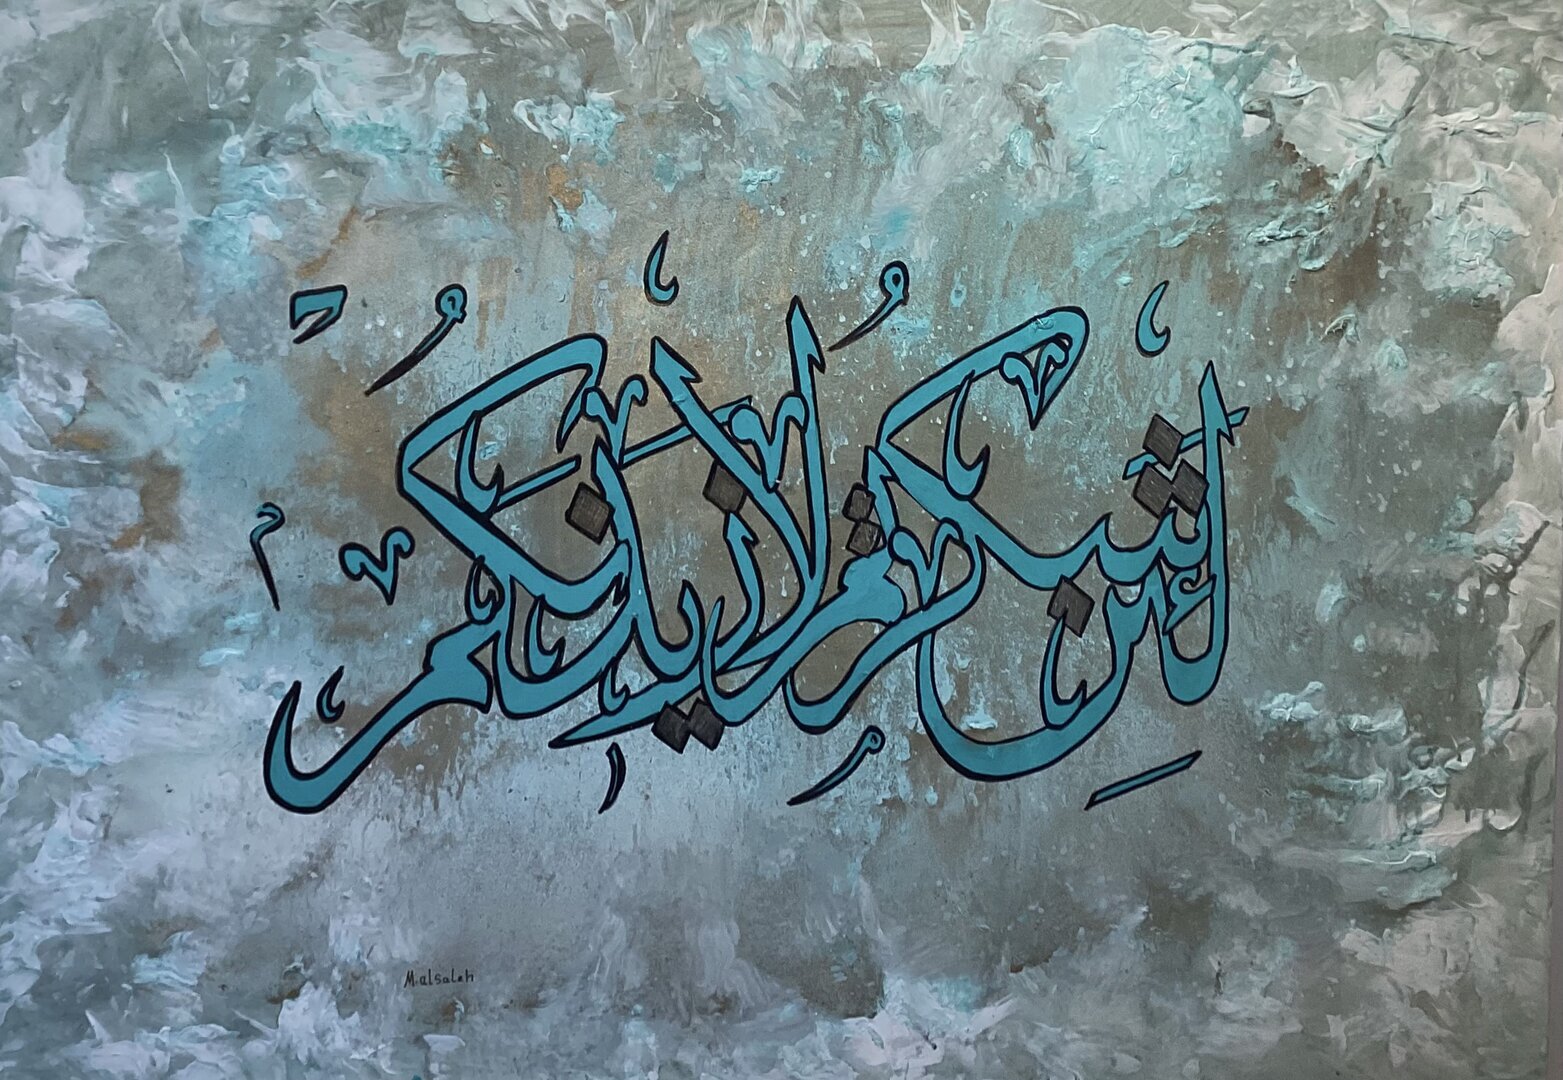 لئن شكرتم لأزيدنكم
M.alsaleh